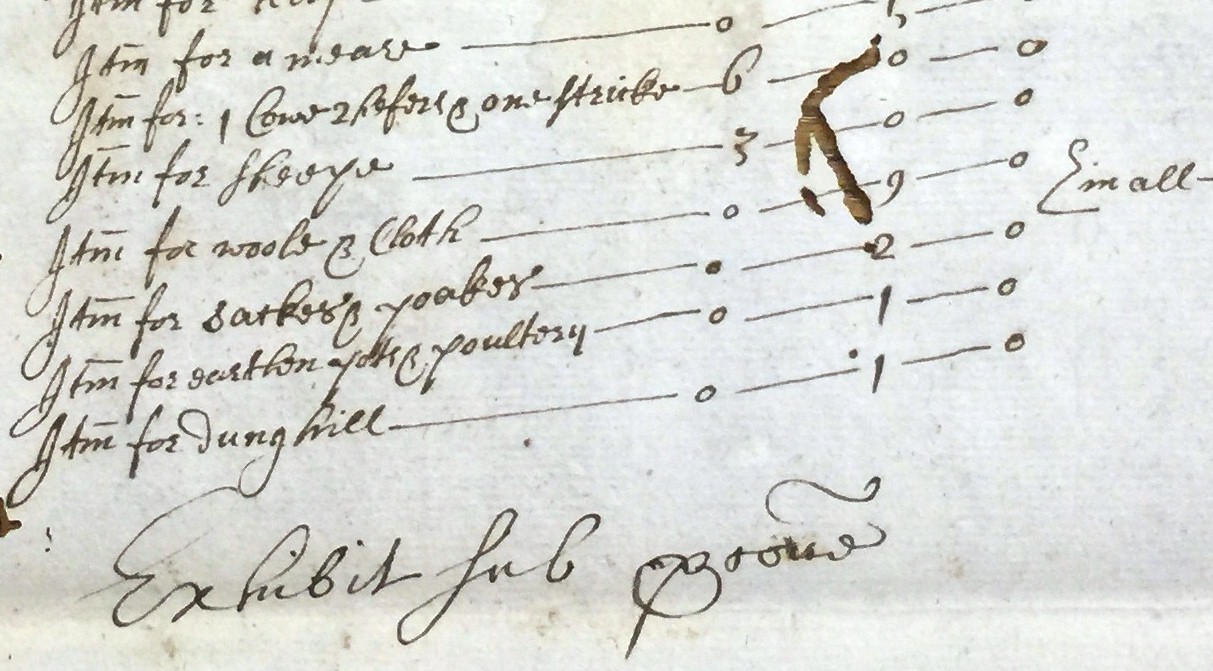 Itm for
Itm for a meare — 0 — 5 —
Itm for: 1 Cowe 2 hefers & one stricke — 6 — 0 — 0
Itm for sheepe — 3 — 0 — 0
Itm for woole & Cloth — 0 — 9 — 0
Itm for sackes & poakes — 0 — 2 — 0
Itm for earthen potts & poultery — 0 — 1 — 0
Itm for dunghill — 0 — 1 — 0
Sum all —
Exhibit sub